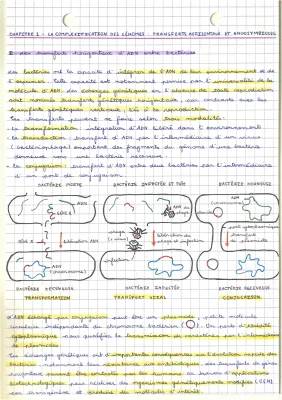 CHAPITRE 1 - LA COMPLEXIFICATION DES GÉNOMES : TRANSFERTS HORIZONTAUX ET ENDOSYMBIOSES
I - des transferts horizontaux d'ADN entre bactéries
Les bactéries ont la capacité d'intégrer de l'ADN de leur environnement et de
l'exprimer. Cette capacité est notamment permise par l'universalité de la
molécule d'ADN. Ces échanges génétiques en l'absence de toute reproduction
sont nommés transferts génétiques horizontaux, par contraste avec les
transferts génétiques verticaux liés à la reproduction.
Ces transferts peuvent se faire selon trois modalités :
- la transformation : intégration d'ADN libéré dans l'environnement
- la transduction : transfert d'ADN par l'intermédiaire d'un virus
(bactériophage) emportant des fragments du génome d'une bactérie
donneuse vers une bactérie receveuse
- la conjugaison : transfert d'ADN entre deux bactéries par l'intermédiaire
d'un pont de conjugaison.
BACTÉRIE MORTE BACTÉRIE INFECTÉE ET TUÉE BACTÉRIE DONNEUSE
phage
(virus)
libération
phage et infection
pont cytoplasmique
transfert
plasmide
infection
BACTÉRIE RECEVEUSE BACTÉRIE INFECTÉE BACTÉRIE RECEVEUSE
TRANSFORMATION TRANSFERT VIRAL CONJUGAISON
L'ADN échangé par conjugaison peut être un plasmide, petite molécule
circulaire indépendante du chromosome bactérien. On parle d'hérédité
cytoplasmique pour qualifier la transmission de caractères par l'intermédiaire
de plasmides.
Les échanges génétiques ont d'importantes conséquences sur l'évolution rapide des
bactéries, notamment leur résistance aux antibiotiques. Ces transferts de gènes
peuvent être
biotechnologiques pour réaliser des organismes génétiquement modifiés (OGM)
et produire des molécules d'intérêt.